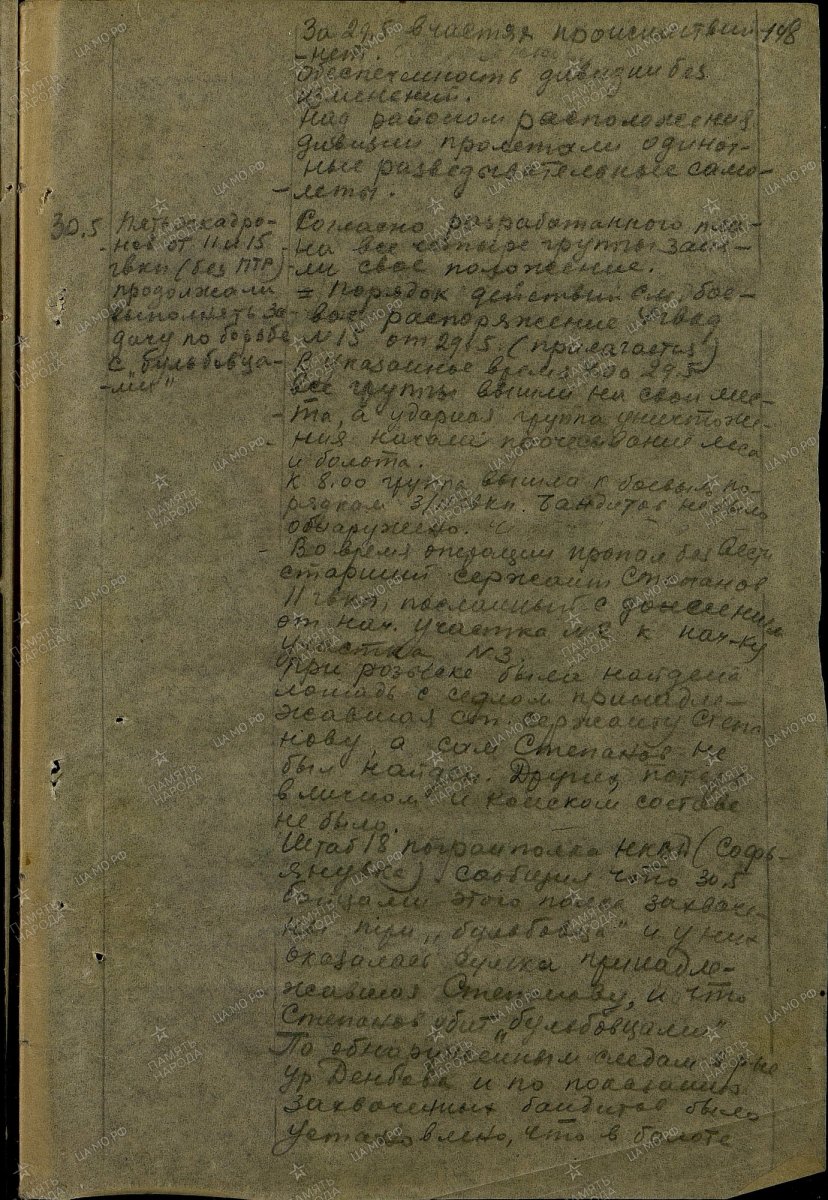 148
За 29.5 в частях происшествий
нет.
Обеспеченность дивизии без
изменений.
Над районом расположения
дивизии пролетали одиноч-
ные разведывательные само-
леты.
30.5
Пять эскадро-
нов от 11 и 15
гвкп (без ПТР)
продолжали
выполнять за-
дачу по борьбе
с "бульбовца-
ми"
Согласно разработанного пла-
на все четыре группы заня-
ли свое положение.
= Порядок действий см. бое-
вое распоряжение
№ 15 от 29.5. (прилагается)
В указанное время 4.00 29.5
все группы вышли на свои мес-
та, а ударная группа уничтоже-
ния начали прочесывание леса
и болота.
К 8.00 группа вышла к боевым по-
рядкам гвкп. Бандитов не было
обнаружено.
Во время операции пропал без вести
старший сержант Степанов
11 гвкп, посланный с донесением
от нач. участка № 2 к нач-ку
участка № 3.
При розыске была найдена
лошадь с седлом принадле-
жавшая ст. сержанту Степа
нову, а сам Степанов не
был найден. Других потерь
в личном и конском составе
не было.
Штаб 18 погранполка НКВД (Софь-
яновка) сообщил что 30.5
бойцами этого полка захваче-
ны три "бульбовца" и у них
оказалась сумка принадле-
жавшая Степанову, и что
Степанов убит "бульбовцами"
По обнаруженным следам в р-не
ур Денбова и по показаниям
захваченных бандитов было
установлено, что в болоте